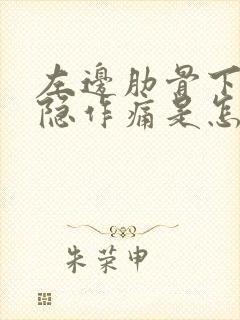 左邊肋骨下
隐作痛是怎
朱荣申